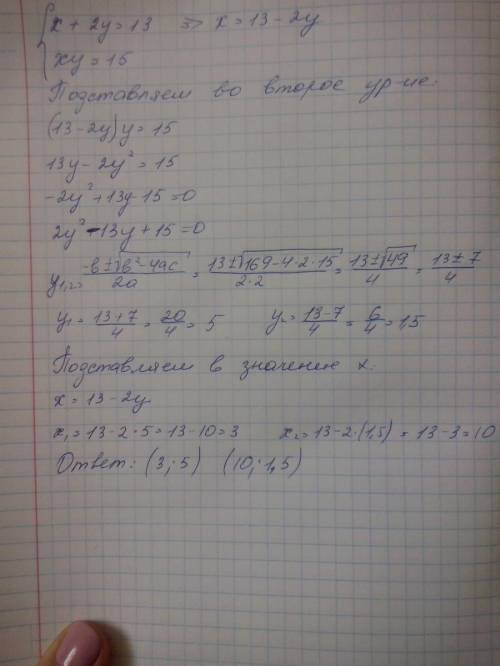 { x + 2y = 13 => x = 13 - 2y
xy = 15
Подставляем во второе ур-ие:
(13 - 2y)y = 15
13y - 2y² = 15
-2y² + 13y - 15 = 0
2y² - 13y + 15 = 0
y₁,₂ = (-в ± √(в² - 4ac))/2a = (13 ± √(169 - 4·2·15))/(2·2) = (13 ± √49)/4 = (13 ± 7)/4
y₁ = (13 + 7)/4 = 20/4 = 5 y₂ = (13 - 7)/4 = 6/4 = 1,5
Подставляем в значение x.
x = 13 - 2y
x₁ = 13 - 2·5 = 13 - 10 = 3 x₂ = 13 - 2·(1,5) = 13 - 3 = 10
Ответ: (3; 5) (10; 1,5)